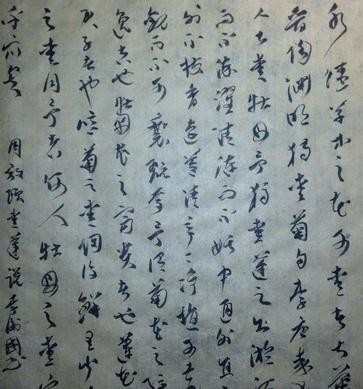 水陸草木之花可愛者甚蕃
晉陶淵明獨愛菊自李唐來世
人甚愛牡丹予獨愛蓮之出淤泥
而不染濯清漣而不妖中通外直
蔓不枝香遠益清亭亭淨植可遠
觀而不可褻玩焉予謂菊花之隱
逸者也牡丹花之富貴者也蓮花
君子者也噫菊之愛陶後鮮有聞
之愛同予者何人牡丹之愛宜
乎眾矣 周敦頤愛蓮說 李